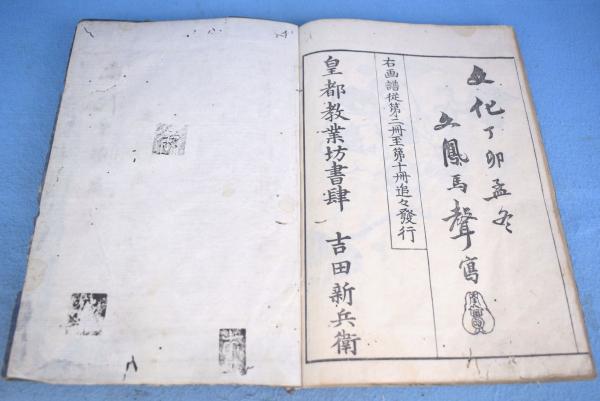 文化丁卯孟冬
文鳳馬聲寫
右画譜従第二冊至第十冊追々發行
皇都教業坊書肆 吉田新兵衛